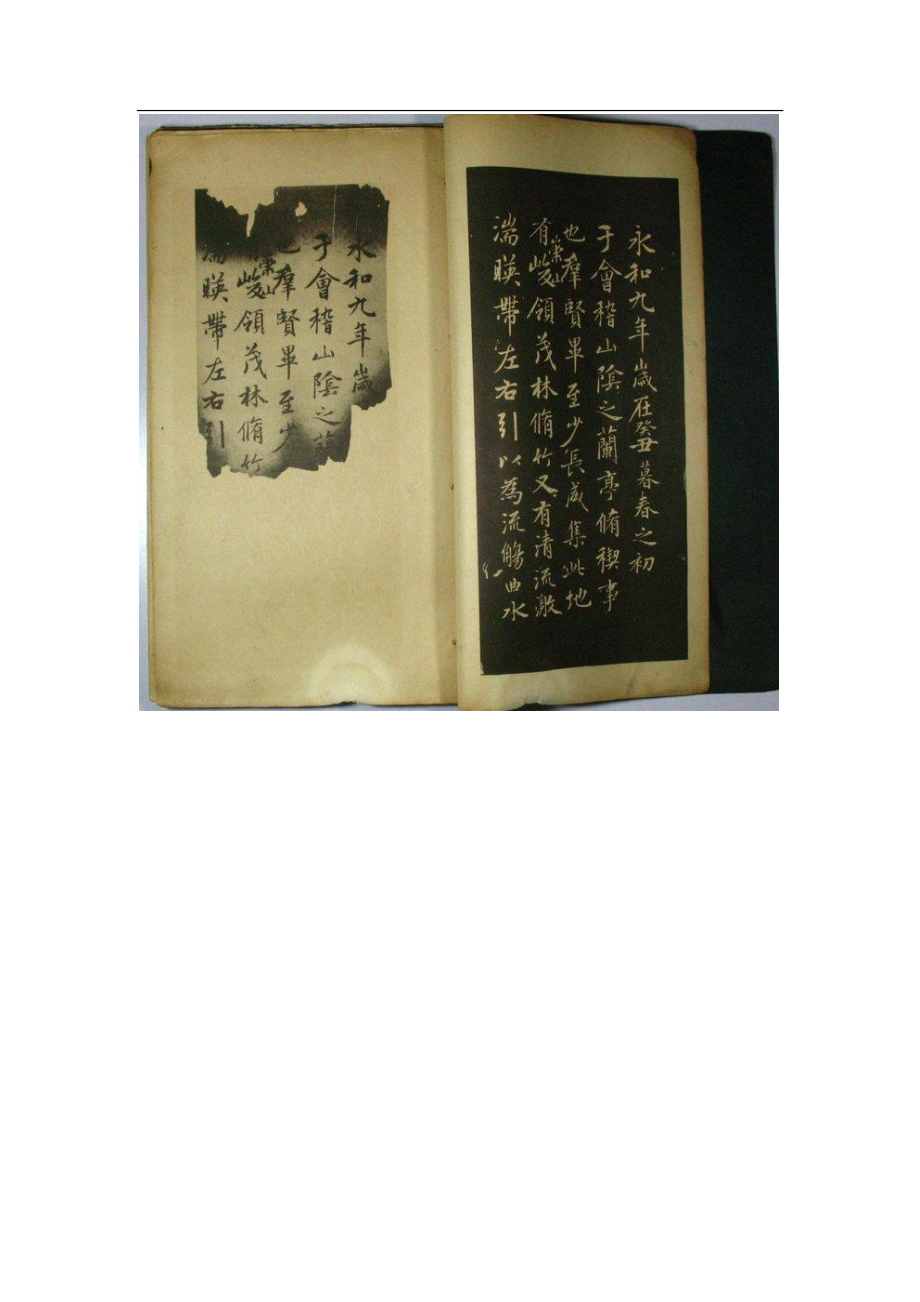 永和九年歲在癸丑暮春之初
于會稽山陰之蘭亭脩稧事
也羣賢畢至少長咸集此地
有崇山峻領茂林脩竹又有清流激
湍暎帶左右引以為流觴曲水
永和九年歲
于會稽山陰之
也羣賢畢至少
崇山峻領茂林脩竹
湍暎帶左右引